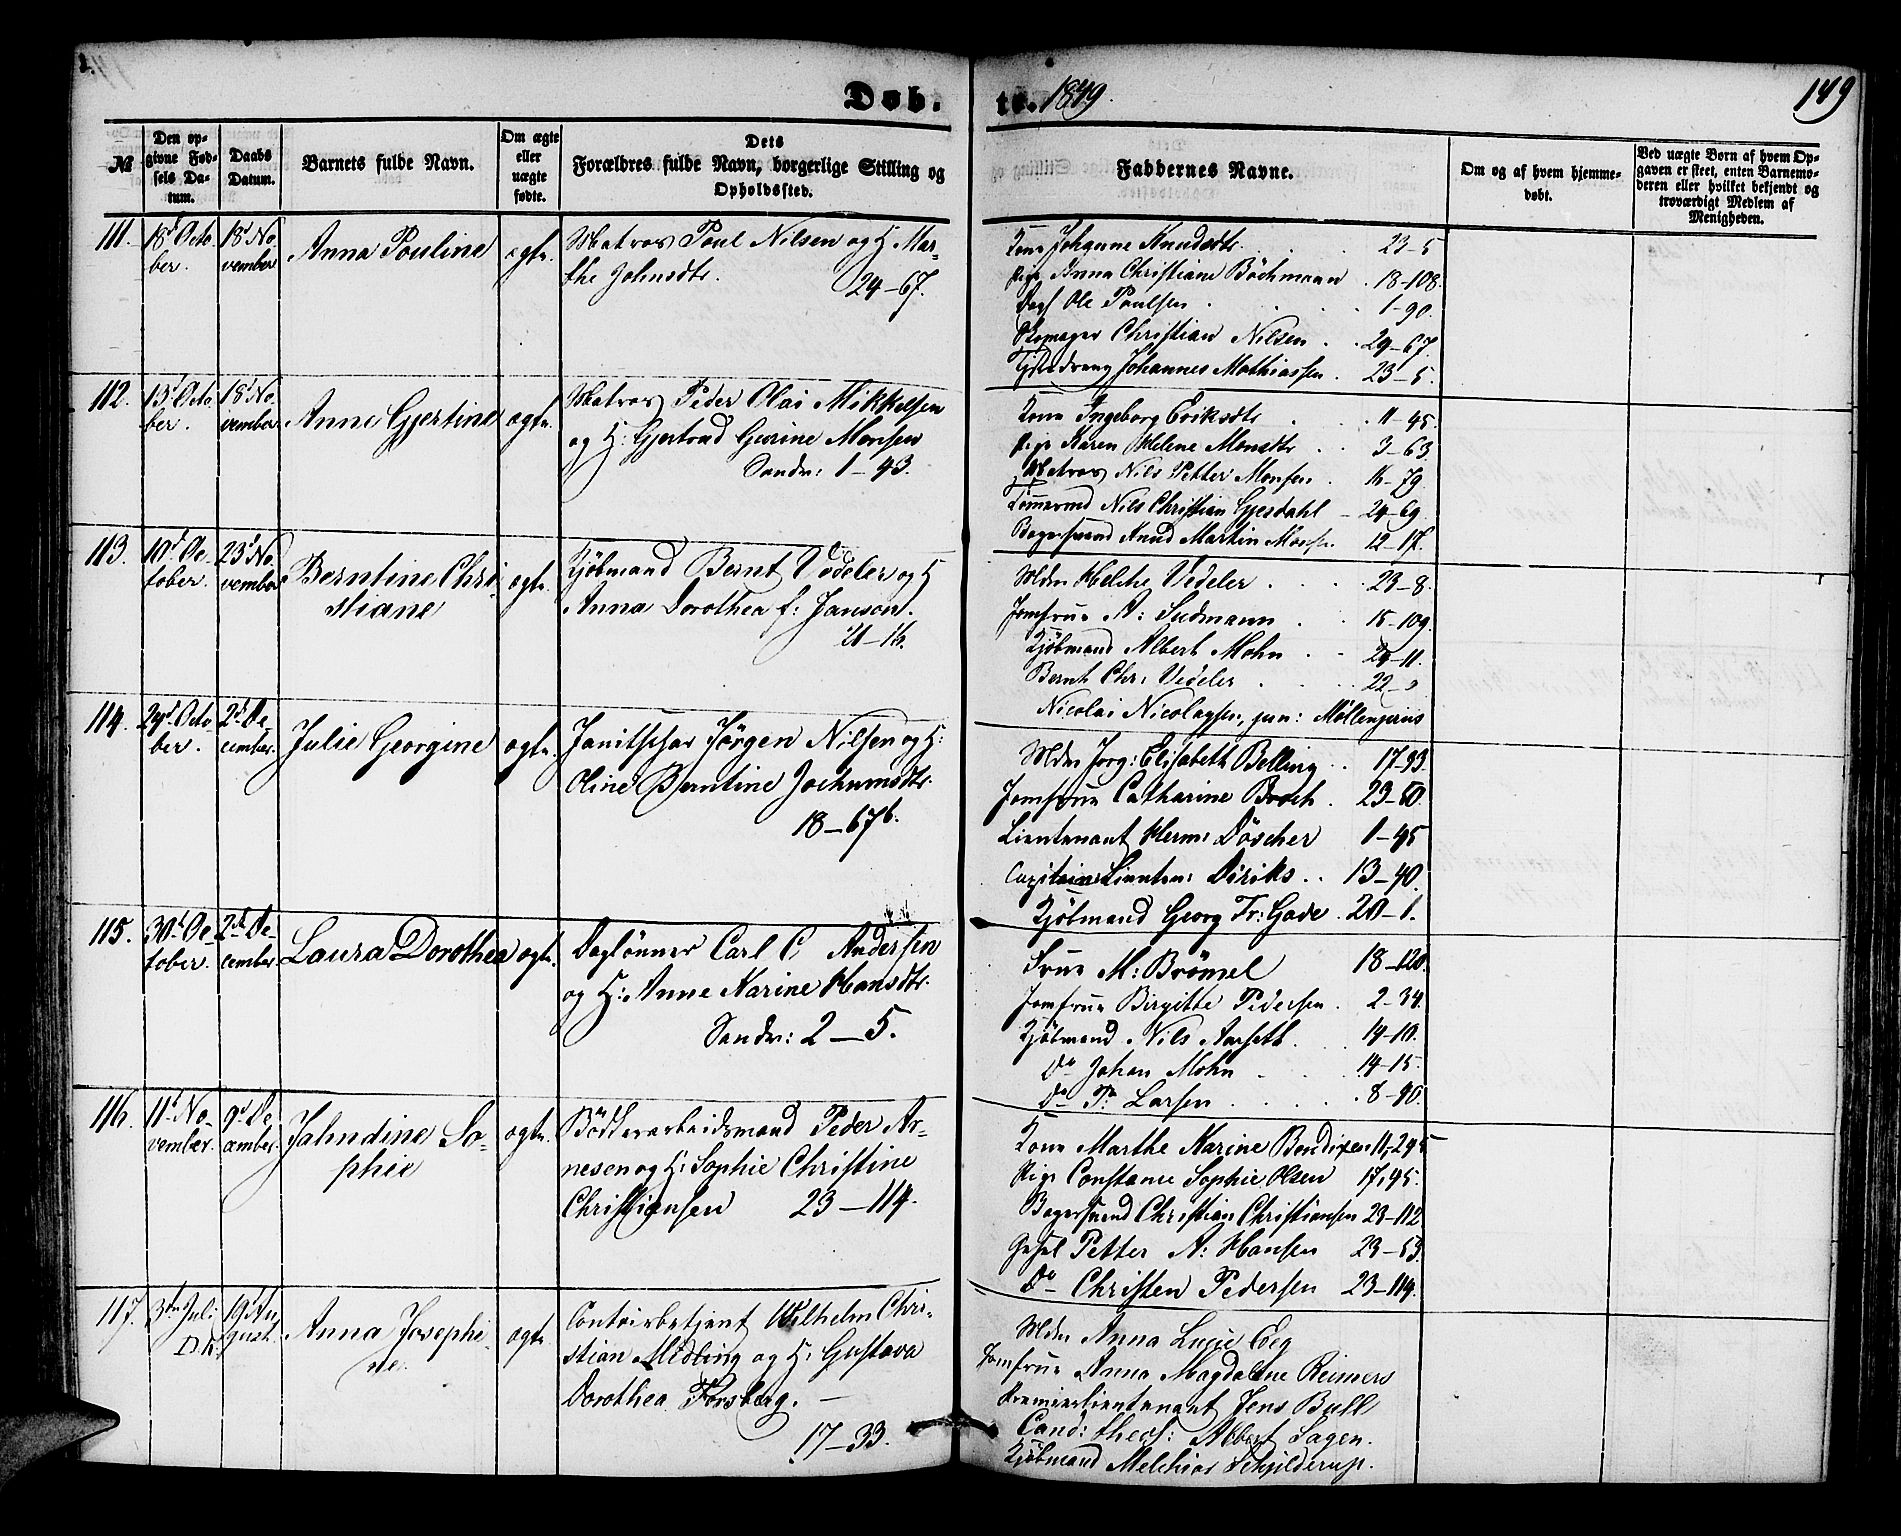 Døb- te. 1849. 149
№
Den opgivne Fødsels Datum.
Daabs Datum.
Barnets fulde Navn.
Om ægte eller uægte fødte.
Dets Forældres fulde Navn, borgerlige Stilling og Opholdssted.
Faddernes Navne.
Om og af hvem hjemmedøbt.
Ved uægte Børn af hvem Opgaven er skeet, enten Barnemoderen eller hvilket bekjendt og troværdigt Medlem af Menigheden.
111. 18d Octo- 18d No-
ber. vember
Anna Pouline ægte.
Matros Poul Nilsen og H. Mar-
the Johnsdtr.
24-67.
Kone Johanne Knudsdtr. 23-5
Pige Anna Christiane Böchmann 18-108.
Ole Poulsen 1-90.
Skomager Christian Nilsen 29-67.
Johannes Mathiassen 23-5.
112. 13d Octo- 18d No-
ber. vember
Anne Gjertine ægte.
Matros Peder Olai Mikkelsen
og H: Gjertrud Gurine Monsen
Sandv: 1-43.
Kone Ingeborg Eriksdtr 11-45
Pige Karen Helene Monsdtr 3-63.
Matros Nils Petter Monsen 16-79.
Tømmermd Nils Christian Gjesdahl 24-69.
Bagersvend Knud Martin Monsen 12-17.
113. 10d Oc- 23d No-
tober. vember
Berntine Chri-
stiane
ægte.
Kjöbmand Bernt Vedeler og H
Anna Dorothea f: Janson.
21-16.
Mdm Helche Vedeler 23-8.
Jomfrue A: Sudmann 15-109.
Kjöbmand Albert Mohn 24-11.
Bernt Chr: Vedeler 22-
Nicolai Nicolaysen, jun: Möllenpriis
114. 24d Octo- 2d De-
ber. cember.
Julie Georgine ægte.
Janitschar Jörgen Nilsen og H:
Oline Berntine Jochumsdtr
18-67b.
Mdm Jörg: Elisabeth Belling 17-93.
Jomfrue Catharine Broch 23-50.
Lieutenant Herm: Döscher 1-45
Capitain Lieuten: Diriks 13-40.
Kjöbmand Georg Fr: Gade 20-1.
115. 30d Oc- 2d De-
tober. cember.
Laura Dorothea ægte.
Daglönner Carl C. Andersen
og H: Anne Karine Hansdtr.
Sandv: 2-5.
Frue M: Brömel 18-120.
Jomfrue Birgitte Pedersen 2-34.
Kjöbmand Nils Aarseth 14-10.
Do Johan Mohn 14-15.
Do P: Larsen 8-90.
116. 11d No- 9d De-
vember. cember.
Jahndine So-
phie
ægte.
Bödkerarbeidsmand Peder Ar-
nesen og H: Sophie Christine
Christiansen 23-114.
Kone Marthe Karine Bendixen 11-295
Pige Constance Sophie Olsen 17,95.
Bagersvend Christian Christiansen 23-112
Petter A: Hansen 23-53.
Do Christen Pedersen 23-114.
117. 3die Juli 19d Au-
D.K. gust.
Anna Josephi-
ne.
ægte.
Contoirbetjent Wilhelm Chri-
stian Midling og H: Gustava
Dorothea Forsberg.
17-33.
Mdm Anna Lucie Eeg
Jomfrue Anna Magdalene Reimers
Premierlieutenant Jens Bull
Cand: theol: Albert Sagen.
Kjöbmand Melchior Schjelderup.